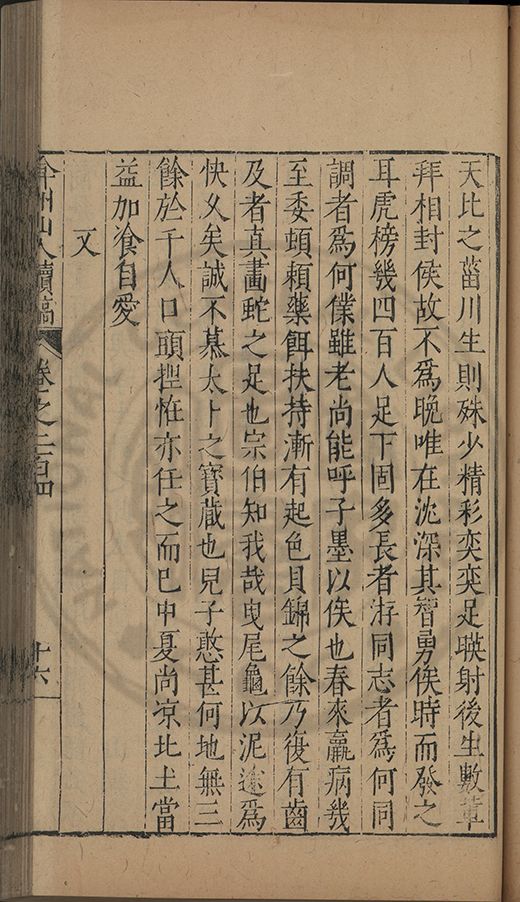 天比之菑川生則殊少精彩奕奕足暎射後生數輩
拜相封侯故不爲晚唯在沈深其智勇俟時而發之
耳虎榜幾四百人足下固多長者游同志者爲何同
調者爲何僕雖老尚能呼子墨以俟也春來羸病幾
至委頓賴藥餌扶持漸有起色貝錦之餘乃復有齒
及者真畫蛇之足也宗伯知我哉曳尾龜以泥途爲
快久矣誠不慕太卜之寶藏也兒子憨甚何地無三
餘於千人口頭揑恠亦任之而已中夏尚凉北土當
益加飡自愛
又
弇州山人續稿
卷之二百四
十六